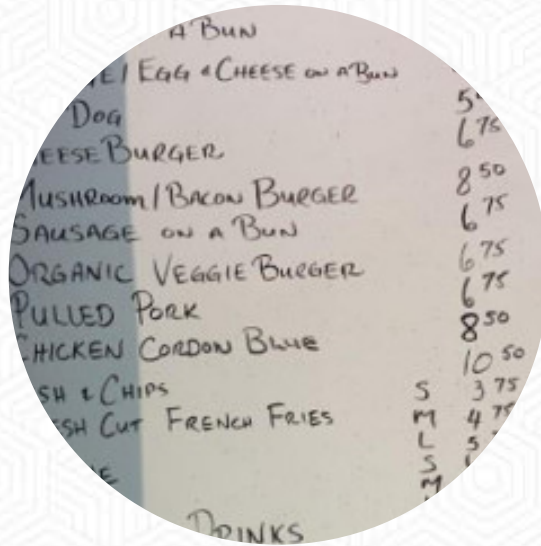 A BUN
E/ EGG & CHEESE ON A BUN
DOG 5
EESE BURGER 6 75
MUSHROOM/BACON BURGER 8 50
SAUSAGE ON A BUN 6 75
ORGANIC VEGGIE BURGER 6 75
PULLED PORK 6 75
HICKEN CORDON BLUE 8 50
SH & CHIPS 10 50
SH CUT FRENCH FRIES S 3 75
M 4 75
L 5
S
M
DRINKS